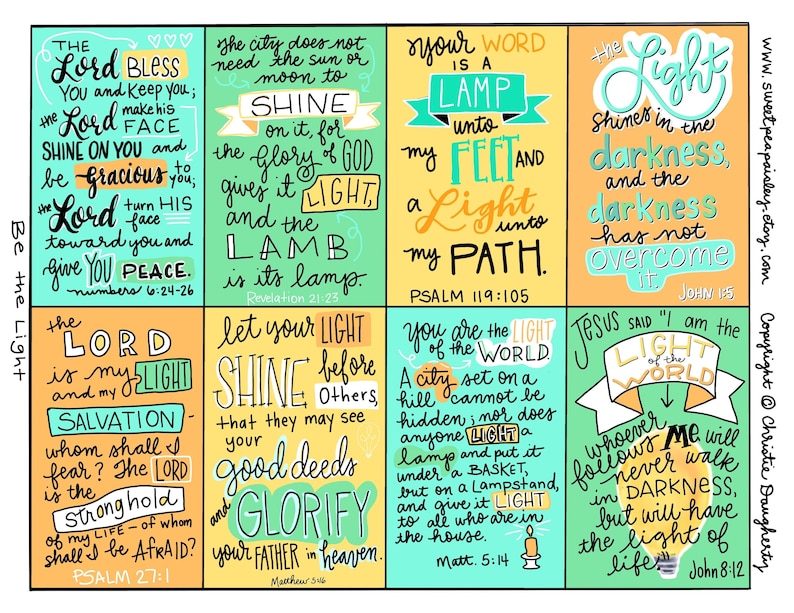 THE
Lord BLESS
YOU and KEEP YOU;
the Lord make his
FACE
SHINE ON YOU and
be gracious to
you;
the Lord turn HIS
face
toward you and
give YOU PEACE.
numbers 6:24-26
The city does not
need the sun or
moon to
SHINE
on it, for
the glory of GOD
gives it LIGHT,
and the
LAMB
is its lamp.
Revelation 21:23
Your WORD
IS A
LAMP
unto
my FEET AND
a Light
unto
my PATH.
PSALM 119:105
the
Light
shines in the
darkness,
and the
darkness
has not
overcome
it.
John 1:5
the
LORD
is my LIGHT
and my
SALVATION -
whom shall I
fear? The LORD
is the
stronghold
of my LIFE - of whom
shall I be AfRAID?
PSALM 27:1
let your LIGHT
SHINE before
Others,
that they may see
your
good deeds
and GLORIFY
your FATHER in heaven.
Matthew 5:16
You are the LIGHT
of the WORLD.
A city set on a
hill cannot be
hidden; nor does
anyone LIGHT a
lamp and put it
under a BASKET,
but on a Lampstand,
and give it LIGHT
to all who are in
the house.
Matt. 5:14
JESUS SAID "I am the
LIGHT
of the
WORLD
whoever
follows Me will
never walk
in DARKNESS,
but will have
the light of
life."
John 8:12
Be the Light
www.sweetpeapaisley.etsy.com
Copyright @ Christie Daugherty